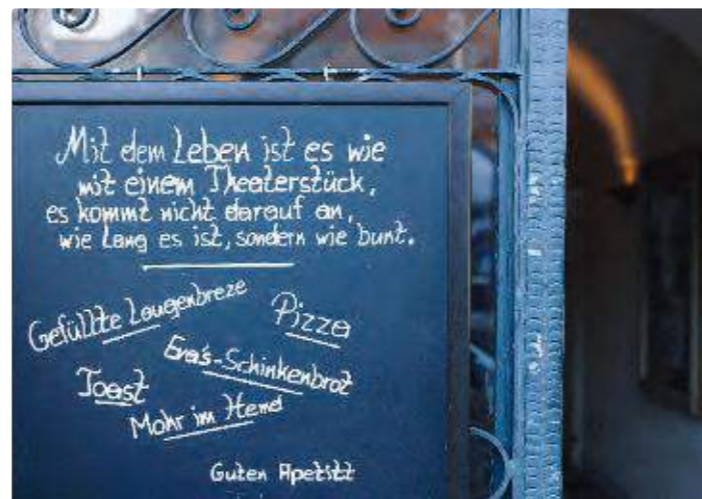 Mit dem Leben ist es wie
mit einem Theaterstück,
es kommt nicht darauf an,
wie lang es ist, sondern wie bunt.
Gefüllte Laugenbreze
Pizza
Eva's-Schinkenbrot
Toast
Mohr im Hemd
Guten Apetitt